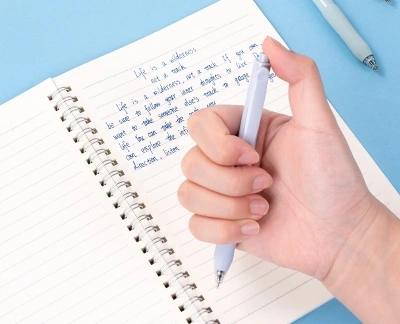 Life is a wilderness
not a track
Life is a wilderness, not a track. If you can
be sure to follow your inner thoughts to live.
want to take someone else's track to gauge
life. You can take the
can explore the
direction, listen